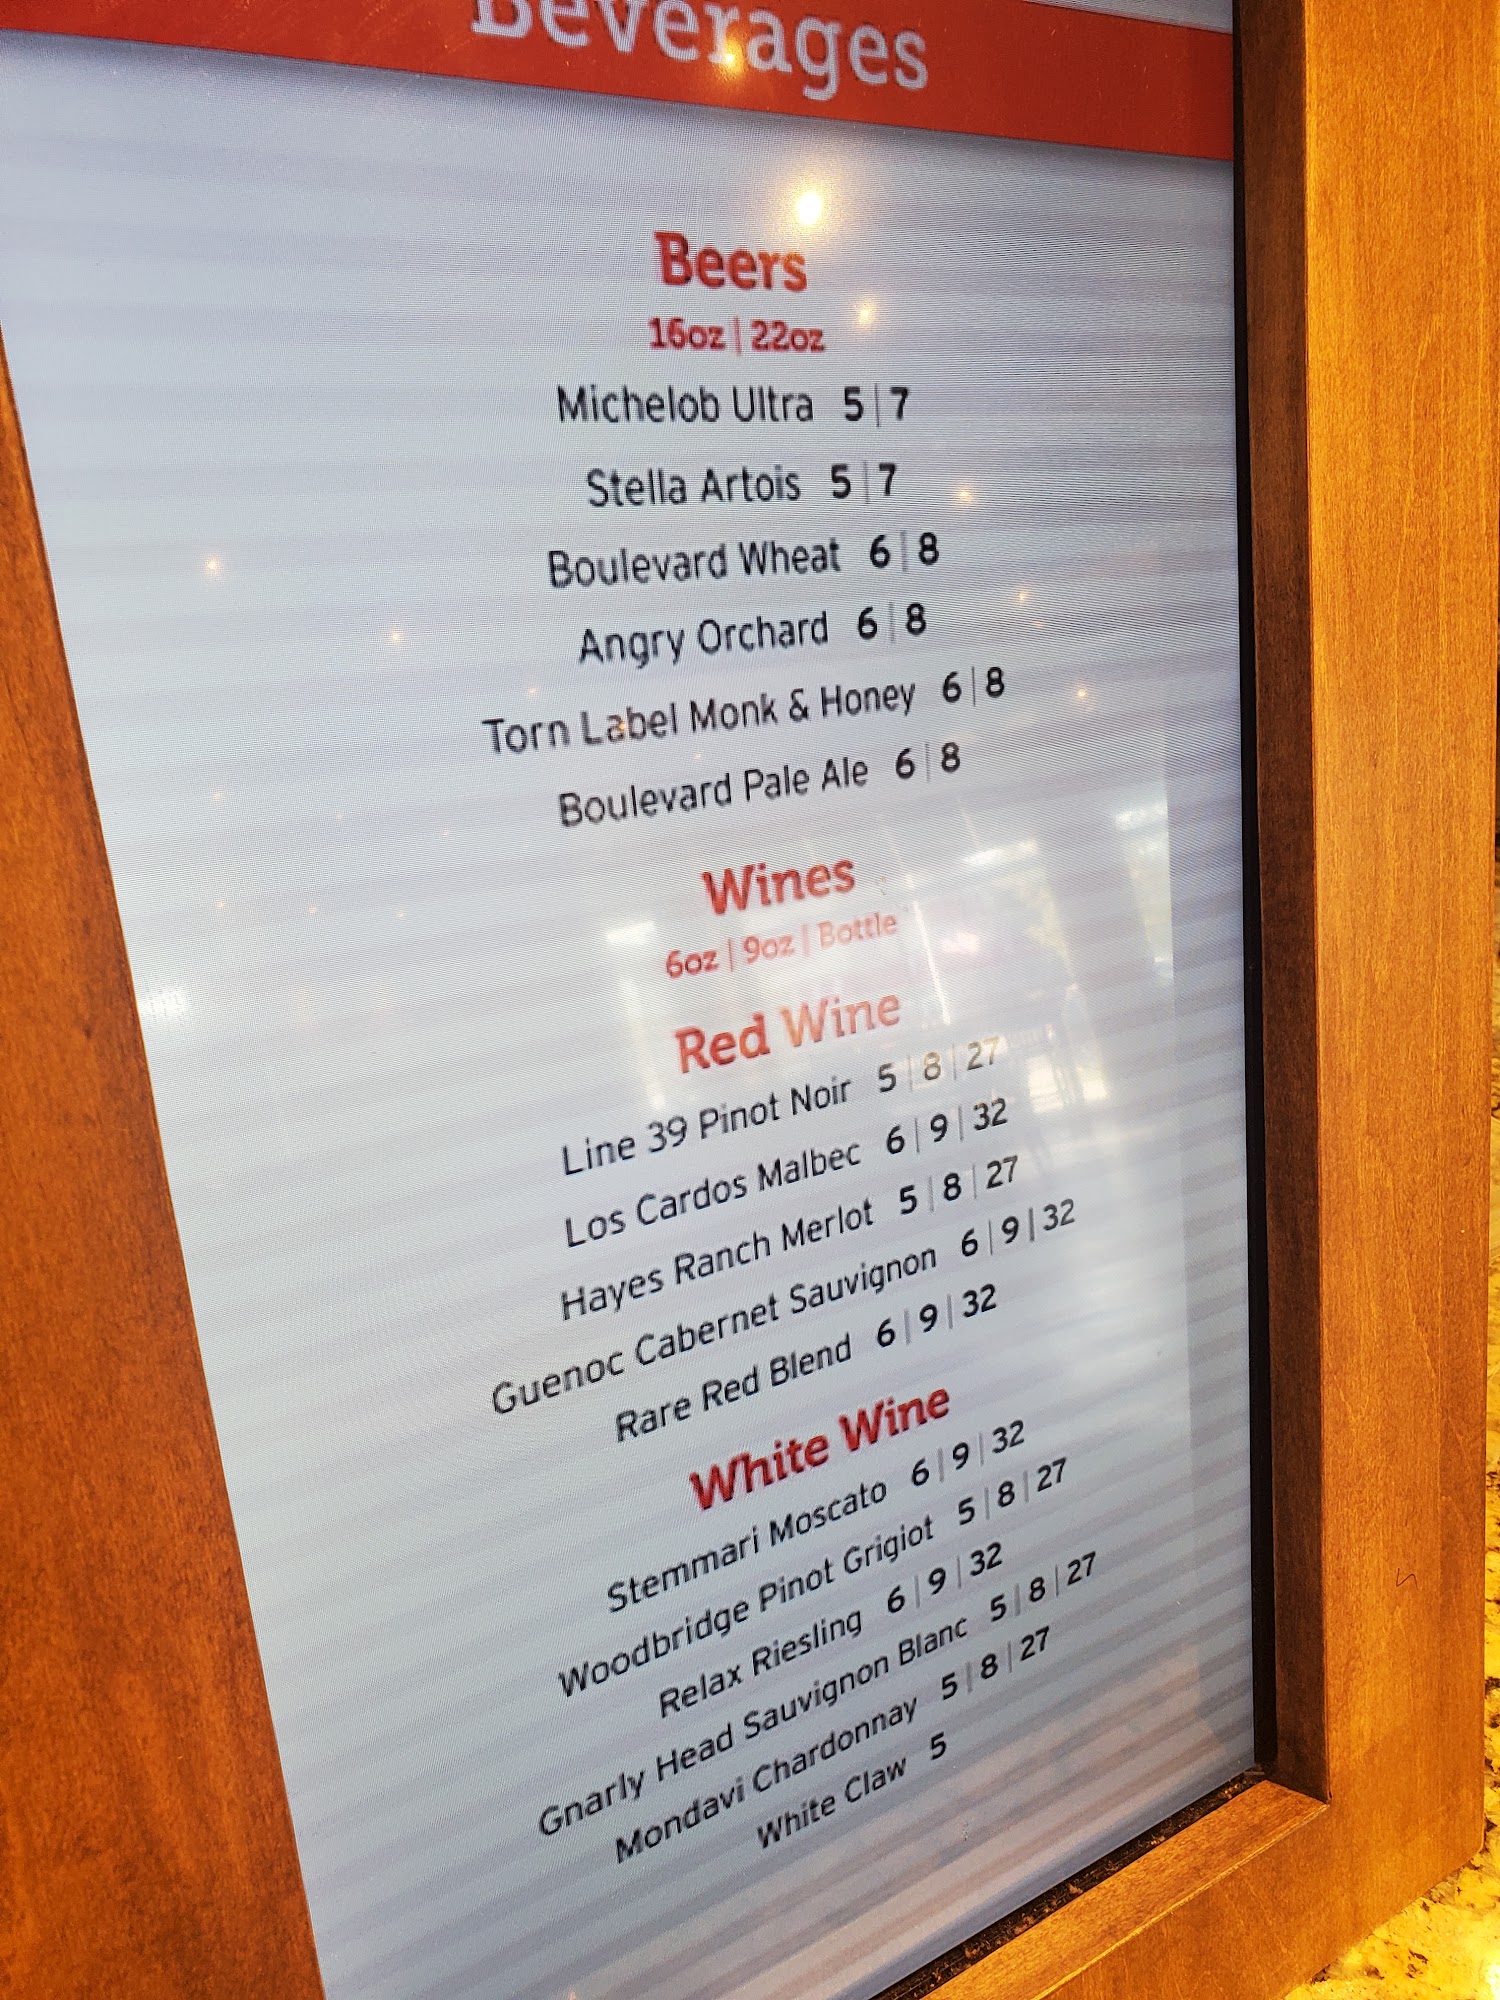 Beverages
Beers
16oz | 22oz
Michelob Ultra 5 | 7
Stella Artois 5 | 7
Boulevard Wheat 6 | 8
Angry Orchard 6 | 8
Torn Label Monk & Honey 6 | 8
Boulevard Pale Ale 6 | 8
Wines
6oz | 9oz | Bottle
Red Wine
Line 39 Pinot Noir 5 | 8 | 27
Los Cardos Malbec 6 | 9 | 32
Hayes Ranch Merlot 5 | 8 | 27
Guenoc Cabernet Sauvignon 6 | 9 | 32
Rare Red Blend 6 | 9 | 32
White Wine
Stemmari Moscato 6 | 9 | 32
Woodbridge Pinot Grigiot 5 | 8 | 27
Relax Riesling 6 | 9 | 32
Gnarly Head Sauvignon Blanc 5 | 8 | 27
Mondavi Chardonnay 5 | 8 | 27
White Claw 5